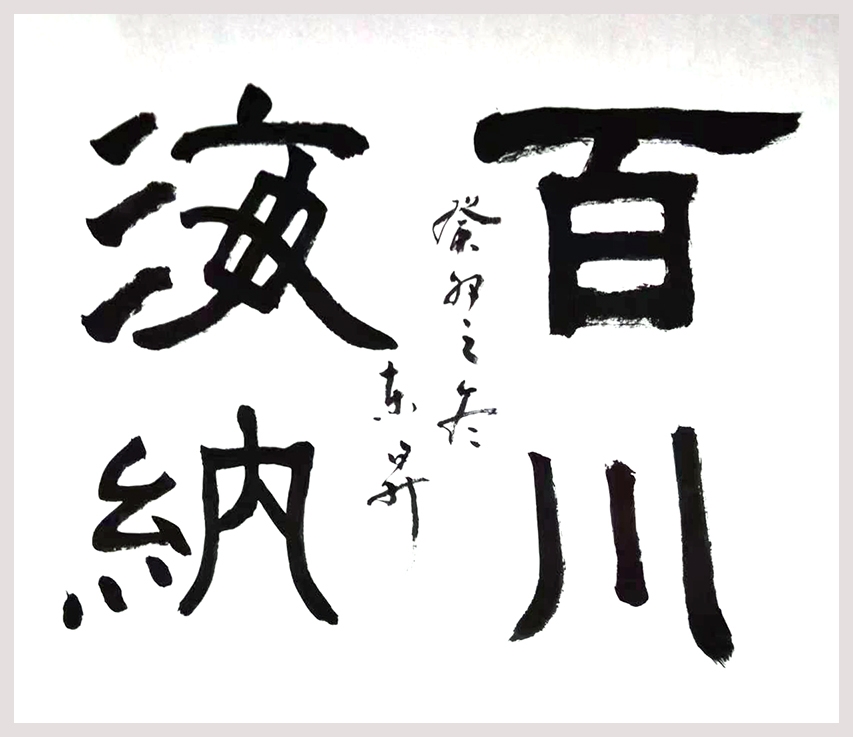 百川
海納
癸卯之冬
东昇